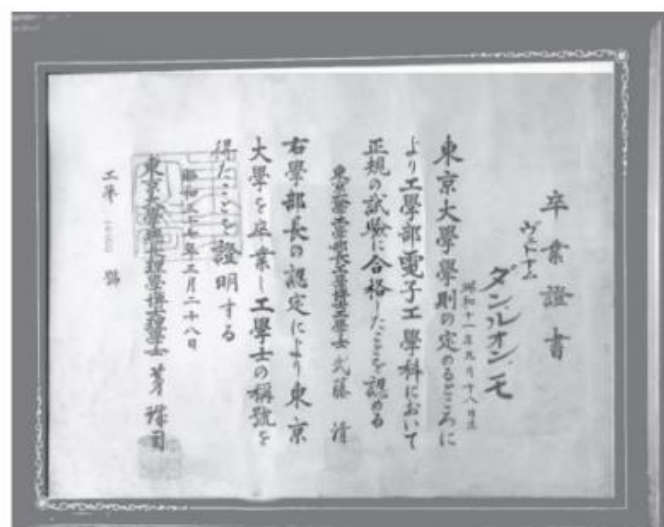 卒業證書
ヴェトナム
ダン.ルオン.モ
昭和十一年九月十八日生
東京大學學則の定めるところに
より工學部電子工學科において
正規の試驗に合格したことを認める
東京大學工學部長工學博士工學士 武藤 清
右學部長の認定により東京
大學を卒業し工學士の稱號を
得たことを證明する
昭和三十七年三月二十八日
東京大學總長理學博士理學士 茅 誠司
工第 號